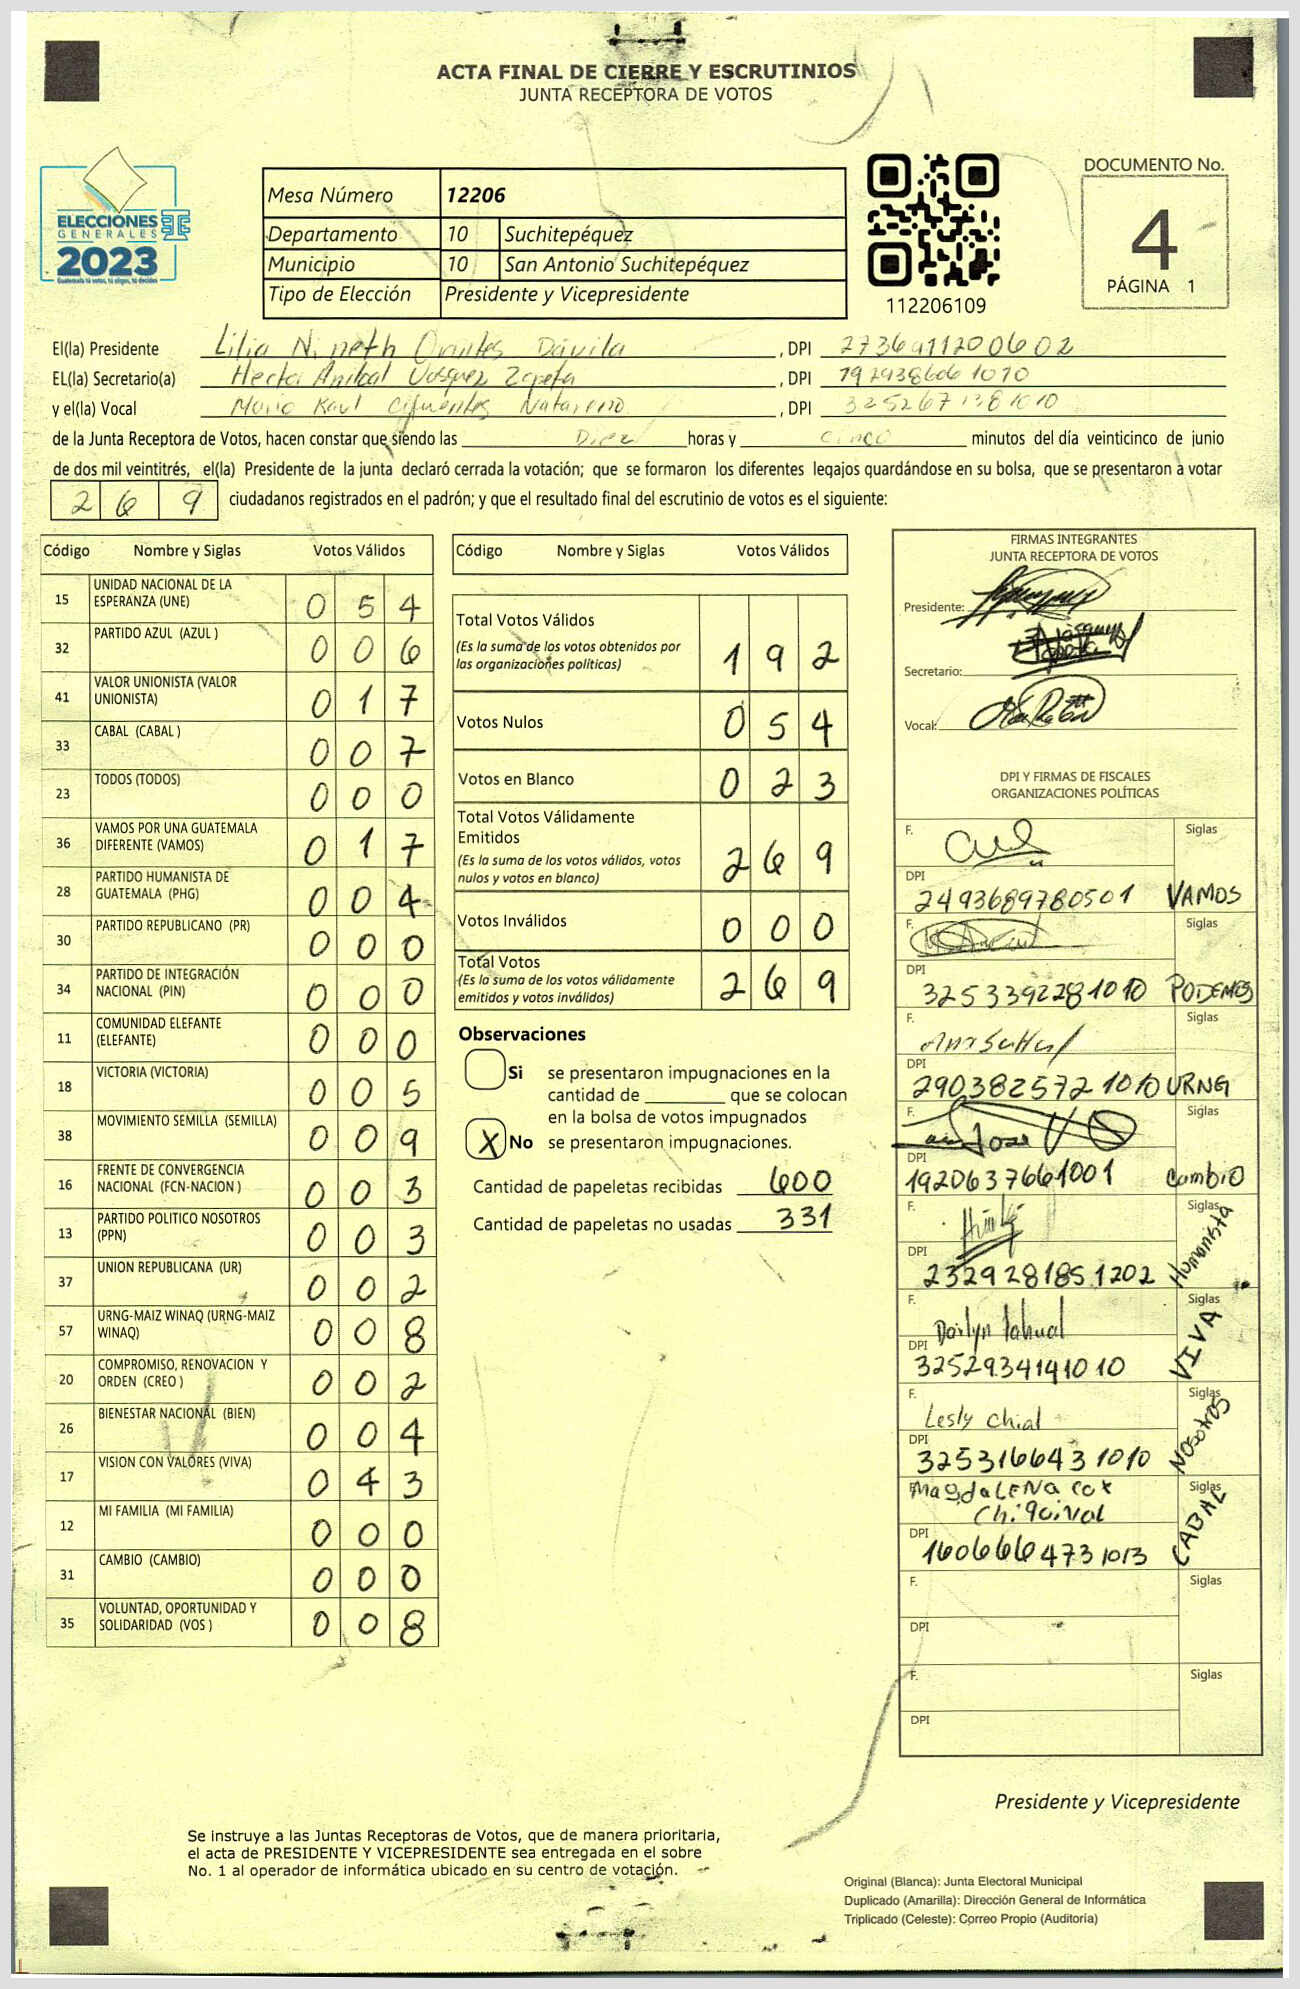 ACTA FINAL DE CIERRE Y ESCRUTINIOS
JUNTA RECEPTORA DE VOTOS
ELECCIONES
GENERALES
2023
Guatemala tú votas, tú eliges, tú decides
Mesa Número 12206
Departamento 10 Suchitepéquez
Municipio 10 San Antonio Suchitepéquez
Tipo de Elección Presidente y Vicepresidente
112206109
DOCUMENTO No.
4
PÁGINA 1
El(la) Presidente Lilia Dávila , DPI
EL(la) Secretario(a) Hector Anibal Vasquez Zepeta , DPI
y el(la) Vocal Mario Raul Cifuentes Natareno , DPI
de la Junta Receptora de Votos, hacen constar que siendo las Diez horas y cinco minutos del día veinticinco de junio
de dos mil veintitrés, el(la) Presidente de la junta declaró cerrada la votación; que se formaron los diferentes legajos guardándose en su bolsa, que se presentaron a votar
2 6 9 ciudadanos registrados en el padrón; y que el resultado final del escrutinio de votos es el siguiente:
Código Nombre y Siglas Votos Válidos
15 UNIDAD NACIONAL DE LA ESPERANZA (UNE) 0 5 4
32 PARTIDO AZUL (AZUL ) 0 0 6
41 VALOR UNIONISTA (VALOR UNIONISTA) 0 1 7
33 CABAL (CABAL ) 0 0 7
23 TODOS (TODOS) 0 0 0
36 VAMOS POR UNA GUATEMALA DIFERENTE (VAMOS) 0 1 7
28 PARTIDO HUMANISTA DE GUATEMALA (PHG) 0 0 4
30 PARTIDO REPUBLICANO (PR) 0 0 0
34 PARTIDO DE INTEGRACIÓN NACIONAL (PIN) 0 0 0
11 COMUNIDAD ELEFANTE (ELEFANTE) 0 0 0
18 VICTORIA (VICTORIA) 0 0 5
38 MOVIMIENTO SEMILLA (SEMILLA) 0 0 9
16 FRENTE DE CONVERGENCIA NACIONAL (FCN-NACION ) 0 0 3
13 PARTIDO POLITICO NOSOTROS (PPN) 0 0 3
37 UNION REPUBLICANA (UR) 0 0 2
57 URNG-MAIZ WINAQ (URNG-MAIZ WINAQ) 0 0 8
20 COMPROMISO, RENOVACION Y ORDEN (CREO ) 0 0 2
26 BIENESTAR NACIONAL (BIEN) 0 0 4
17 VISION CON VALORES (VIVA) 0 4 3
12 MI FAMILIA (MI FAMILIA) 0 0 0
31 CAMBIO (CAMBIO) 0 0 0
35 VOLUNTAD, OPORTUNIDAD Y SOLIDARIDAD (VOS ) 0 0 8
Código Nombre y Siglas Votos Válidos
Total Votos Válidos
(Es la suma de los votos obtenidos por
las organizaciones políticas) 1 9 2
Votos Nulos 0 5 4
Votos en Blanco 0 2 3
Total Votos Válidamente
Emitidos
(Es la suma de los votos válidos, votos
nulos y votos en blanco) 2 6 9
Votos Inválidos 0 0 0
Total Votos
(Es la suma de los votos válidamente
emitidos y votos inválidos) 2 6 9
Observaciones
Si se presentaron impugnaciones en la
cantidad de ________ que se colocan
en la bolsa de votos impugnados
X No se presentaron impugnaciones.
Cantidad de papeletas recibidas 600
Cantidad de papeletas no usadas 331
FIRMAS INTEGRANTES
JUNTA RECEPTORA DE VOTOS
Presidente:
Secretario:
Vocal:
DPI Y FIRMAS DE FISCALES
ORGANIZACIONES POLÍTICAS
F. Siglas
DPI
2493689780501 VAMOS
F. Siglas
DPI
3253392281010 PODEMOS
F. Siglas
DPI
2903825721010 URNG
F. Jose Siglas
DPI
1920637661001 Cambio
F. Siglas
DPI
2329281851202 Humanista
F. Siglas
DPI
3252934141010 VIVA
F. Lesly Chial Siglas
DPI
3253166431010 Nosotros
F. Magdalena Cox Siglas
Chiquival
DPI
1606664731013 CABAL
F. Siglas
DPI
F. Siglas
DPI
Presidente y Vicepresidente
Se instruye a las Juntas Receptoras de Votos, que de manera prioritaria,
el acta de PRESIDENTE Y VICEPRESIDENTE sea entregada en el sobre
No. 1 al operador de informática ubicado en su centro de votación.
Original (Blanca): Junta Electoral Municipal
Duplicado (Amarilla): Dirección General de Informática
Triplicado (Celeste): Correo Propio (Auditoría)